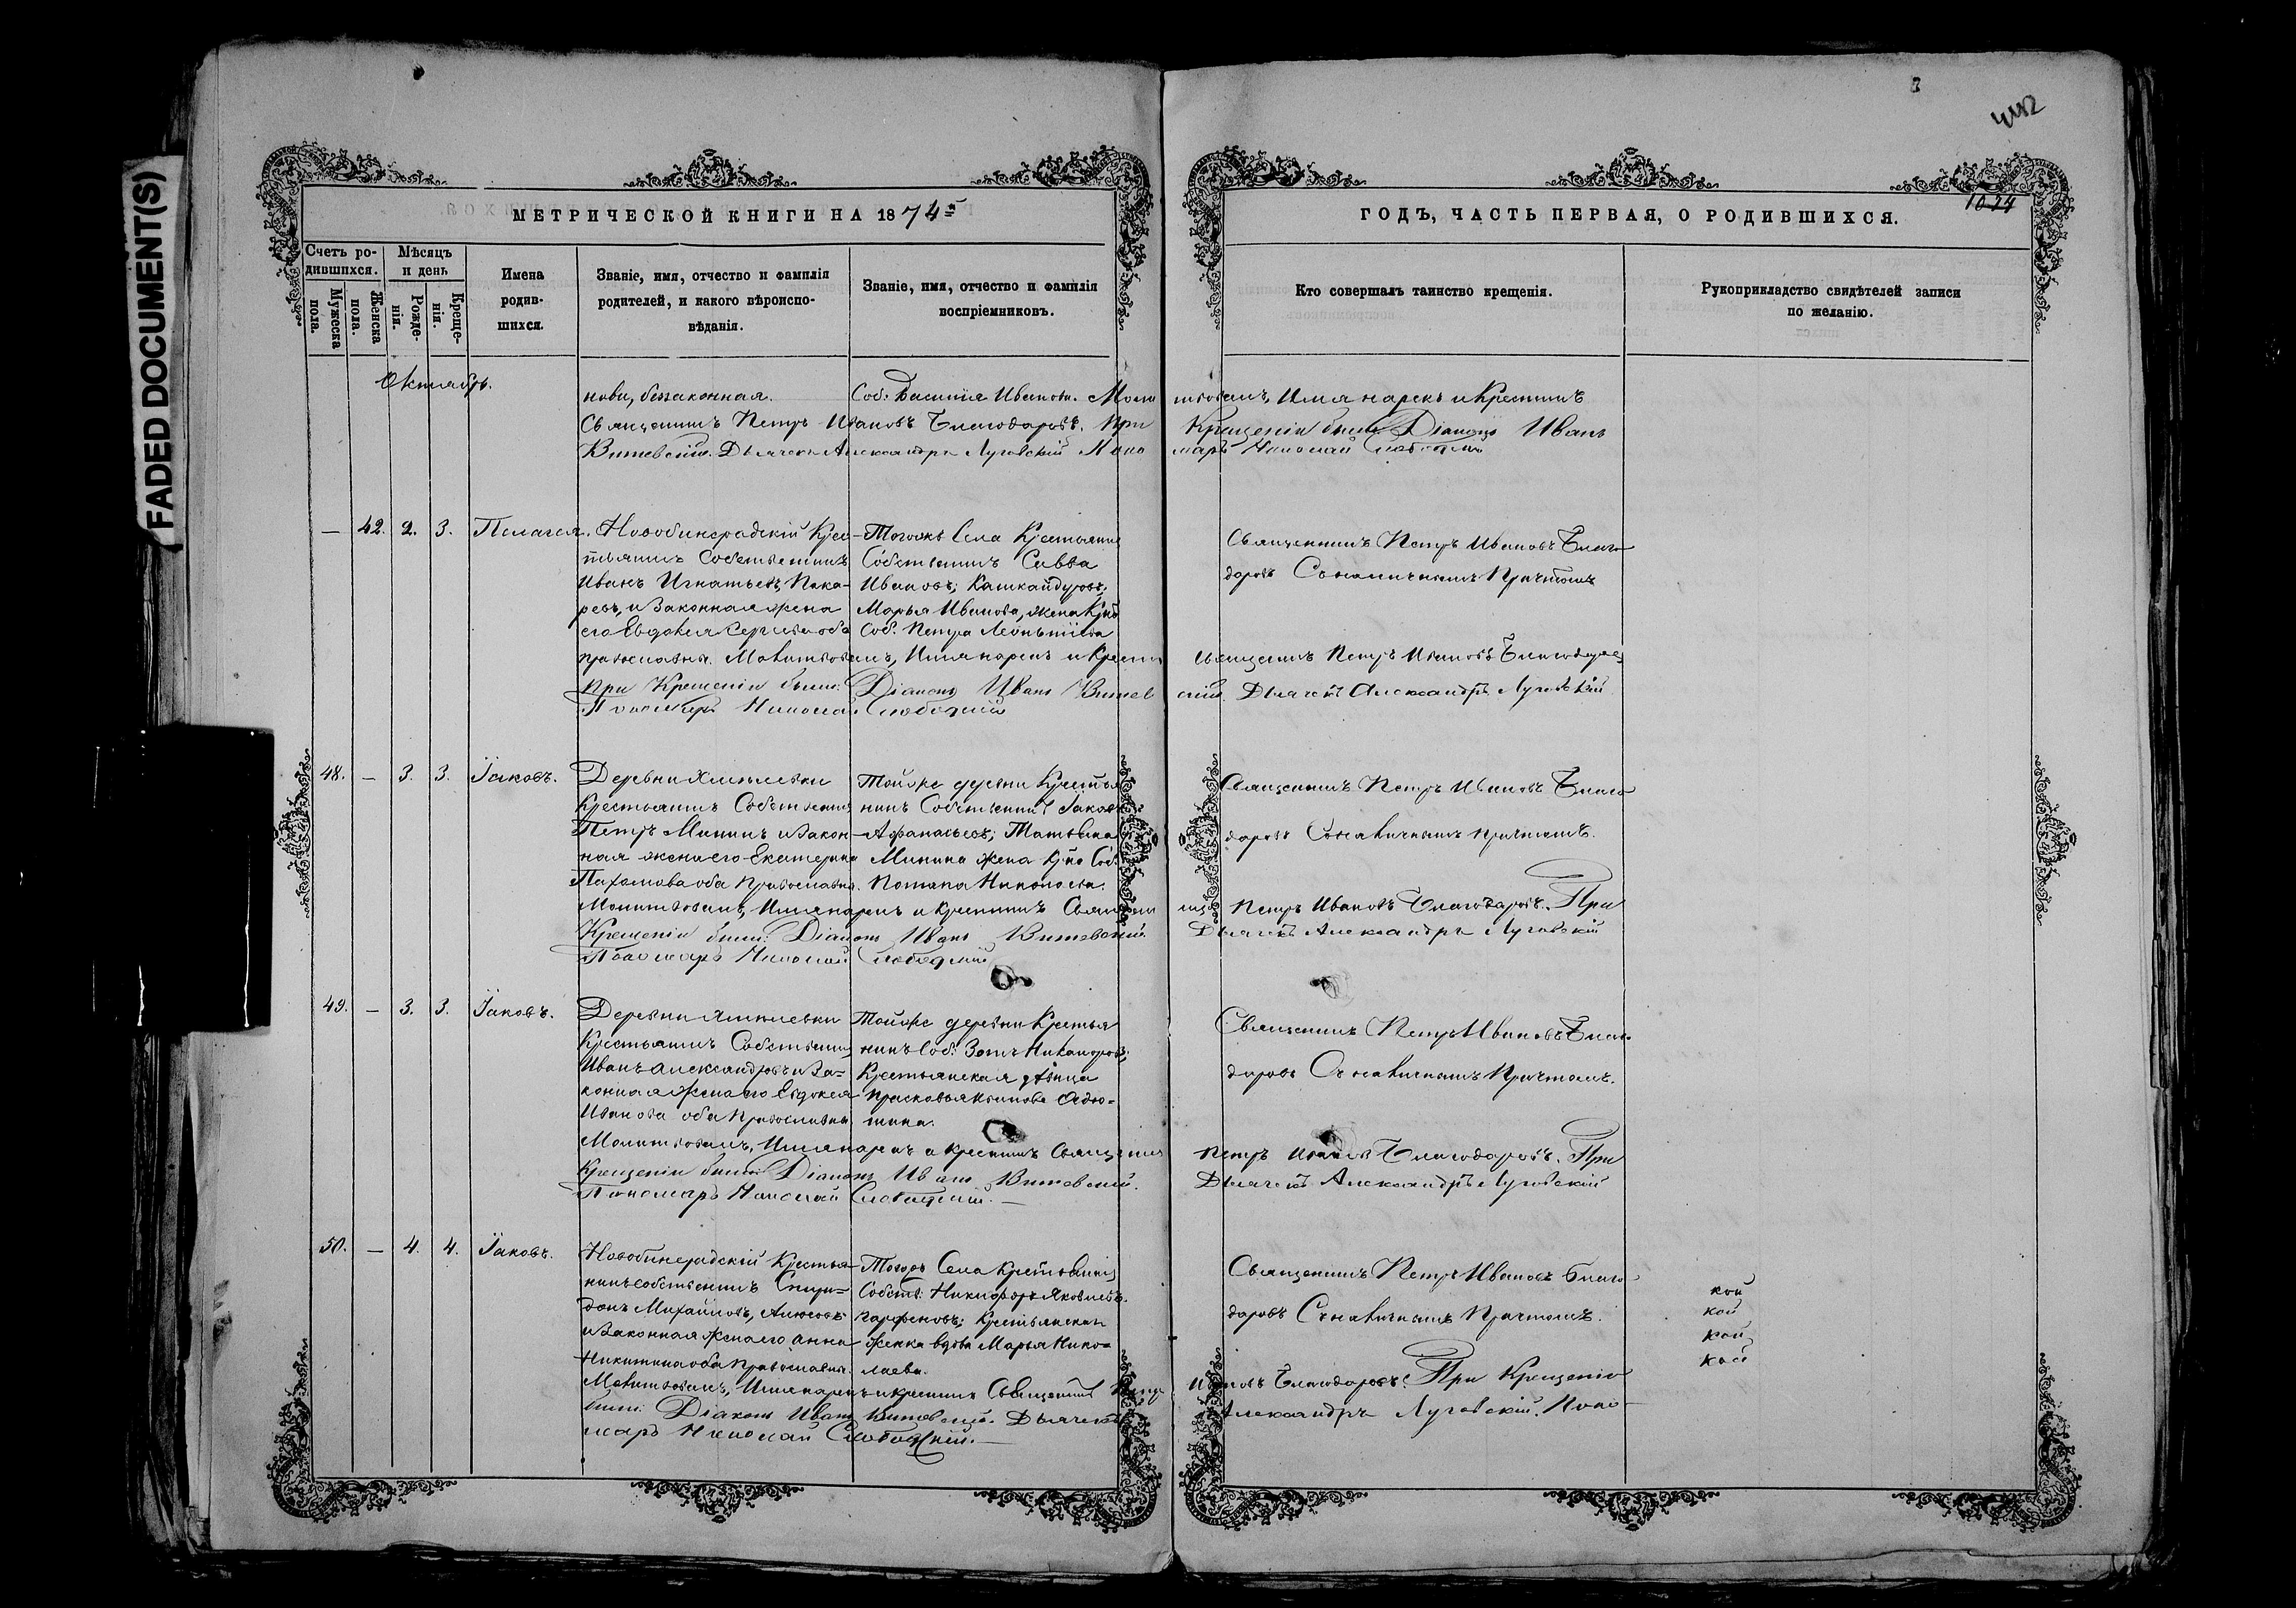 FADED DOCUMENT(S)
442
10 24
МЕТРИЧЕСКОЙ КНИГИ НА 1874й
ГОДЪ, ЧАСТЬ ПЕРВАЯ, О РОДИВШИХСЯ.
Счетъ родившихся.
Мужеска пола.
Женска пола.
Мѣсяцъ и день
Рожденія.
Крещенія.
Имена родившихся.
Званіе, имя, отчество и фамилія родителей, и какого вѣроисповѣданія.
Званіе, имя, отчество и фамилія воспріемниковъ.
Кто совершалъ таинство крещенія.
Рукоприкладство свидѣтелей записи по желанію.
Октябрь.
нови, беззаконная. Соб. Василія Иванова. Молитвовалъ, Имя нарекъ и Крестилъ
Священникъ Петръ Ивановъ Благодаровъ. При Крещеніи были: Діаконъ Иванъ
Витевскій. Дьячекъ Александръ Луговскій Пономарь Николай
— 42. 2. 3. Пелагея.
Новобинарадскій Крес-
тьянинъ Собственникъ
Иванъ Игнатьевъ, Пека-
ревъ, и Законная жена
его Евдокея Сергѣева оба
православны.
Тогожъ Села Крестьянинъ
Собственникъ Савва
Ивановъ, Кашкайдуровъ;
Марья Иванова, жена
Соб. Петра Леонтіева
Священникъ Петръ Ивановъ Благо-
даровъ Съ наличнымъ Причтомъ
Молитвовалъ, Имя нарекъ и Крестилъ Священникъ Петръ Ивановъ Благодаровъ
При Крещеніи были: Діаконъ Иванъ Витевскій. Дьячекъ Александръ Луговскій
Пономарь Николай Слободскій
48. — 3. 3. Іаковъ.
Деревни
Крестьянинъ Собственникъ
Петръ Мининъ и Закон-
ная жена его Екатерина
Пахомова оба Православны.
Тойже деревни Крестья
нинъ Собственникъ Іаковъ
Афанасьевъ; Татьяна
Минина жена Соб.
Потапа Николаева.
Священникъ Петръ Ивановъ Благо
даровъ Съ наличнымъ причтомъ.
Молитвовалъ, Имя нарекъ и Крестилъ Священникъ Петръ Ивановъ Благодаровъ. При
Крещеніи были: Діаконъ Иванъ Витевскій. Дьячекъ Александръ Луговскій
Пономарь Николай Слободскій
49. — 3. 3. Іаковъ.
Деревни
Крестьянинъ Собственникъ
Иванъ Александровъ и За-
конная жена его Евдокея
Иванова оба Православны
Тойже деревни Крестья
нинъ Соб. Зотъ Никаноровъ;
Крестьянская дѣвица
Прасковья
Священникъ Петръ Ивановъ Благо-
даровъ Съ наличнымъ Причтомъ.
Молитвовалъ, Имя нарекъ и крестилъ Священникъ Петръ Ивановъ Благодаровъ. При
Крещеніи были: Діаконъ Иванъ Витевскій. Дьячекъ Александръ Луговскій
Пономарь Николай Слободскій. —
50. — 4. 4. Іаковъ.
Новобинарадскій Крестья-
нинъ собственникъ Спири-
донъ Михайловъ,
и Законная жена его Анна
Никитина оба Православны.
Тогожъ Села Крестьянинъ
Собств: Никифоръ Яковлевъ.
Парфеновъ; Крестьянская
женка вдова Марья Нико-
лаева.
Священникъ Петръ Ивановъ Благо-
даровъ Съ наличнымъ Причтомъ.
кой
кой
кой
кой
Молитвовалъ, Имя нарекъ и крестилъ Священникъ Петръ Ивановъ Благодаровъ. При Крещеніи
были: Діаконъ Иванъ Витевскій. Дьячекъ Александръ Луговскій. Поно-
марь Николай Слободскій. —